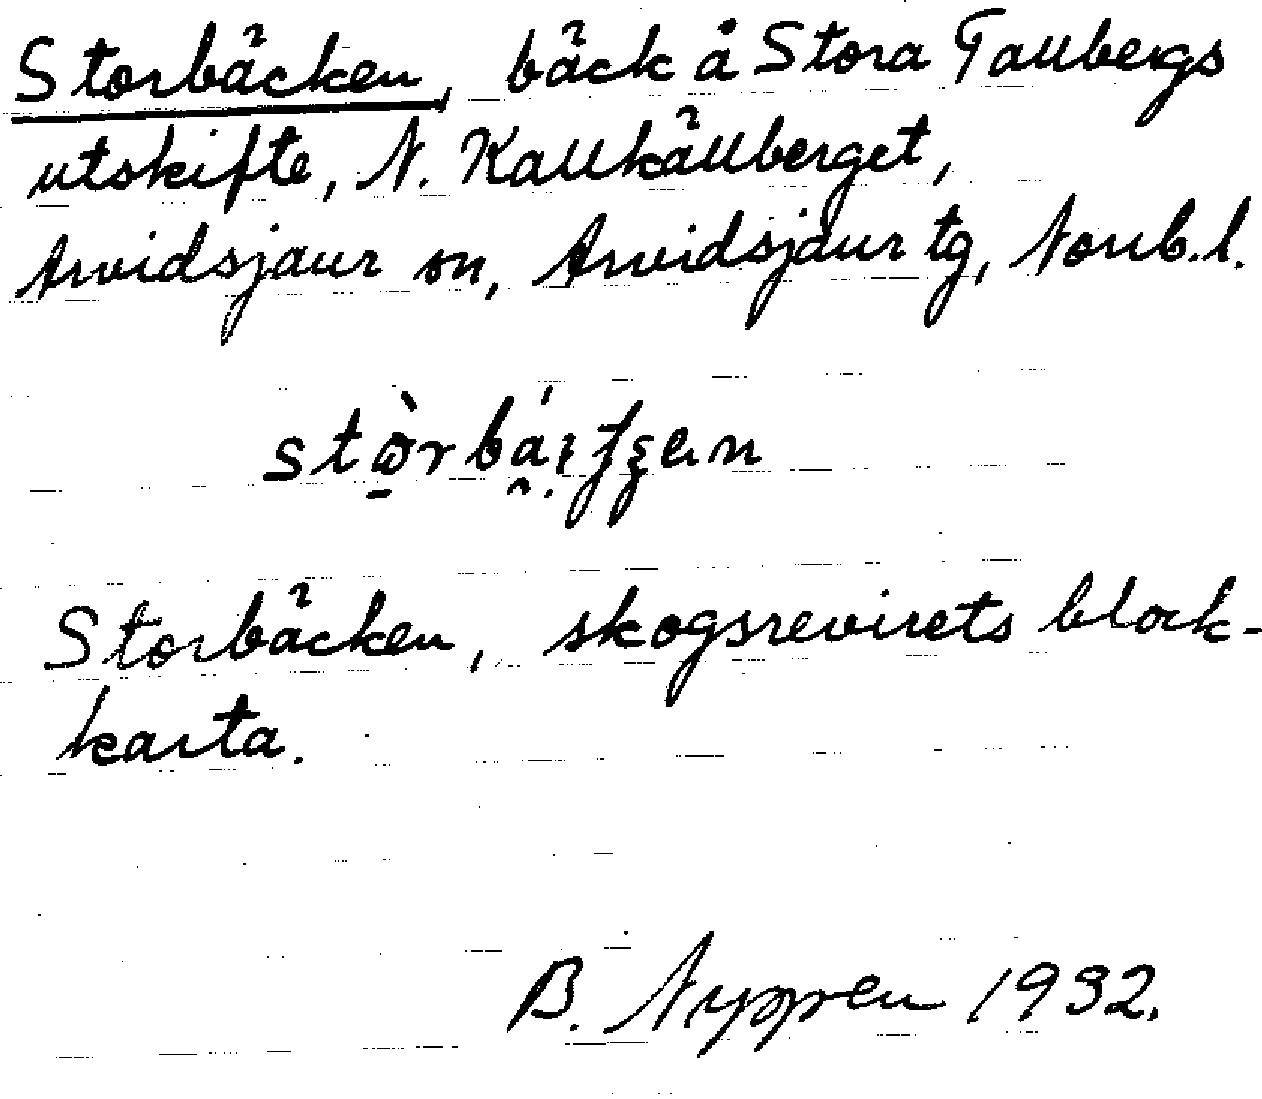 Storbäcken, bäck å Stora Tallbergs
utskifte, N. Kallkällberget,
Arvidsjaur sn, Arvidsjaur tg, Norrb.l.
Storbäcken, skogsrevirets block-
karta.
B. Nyppen 1932.